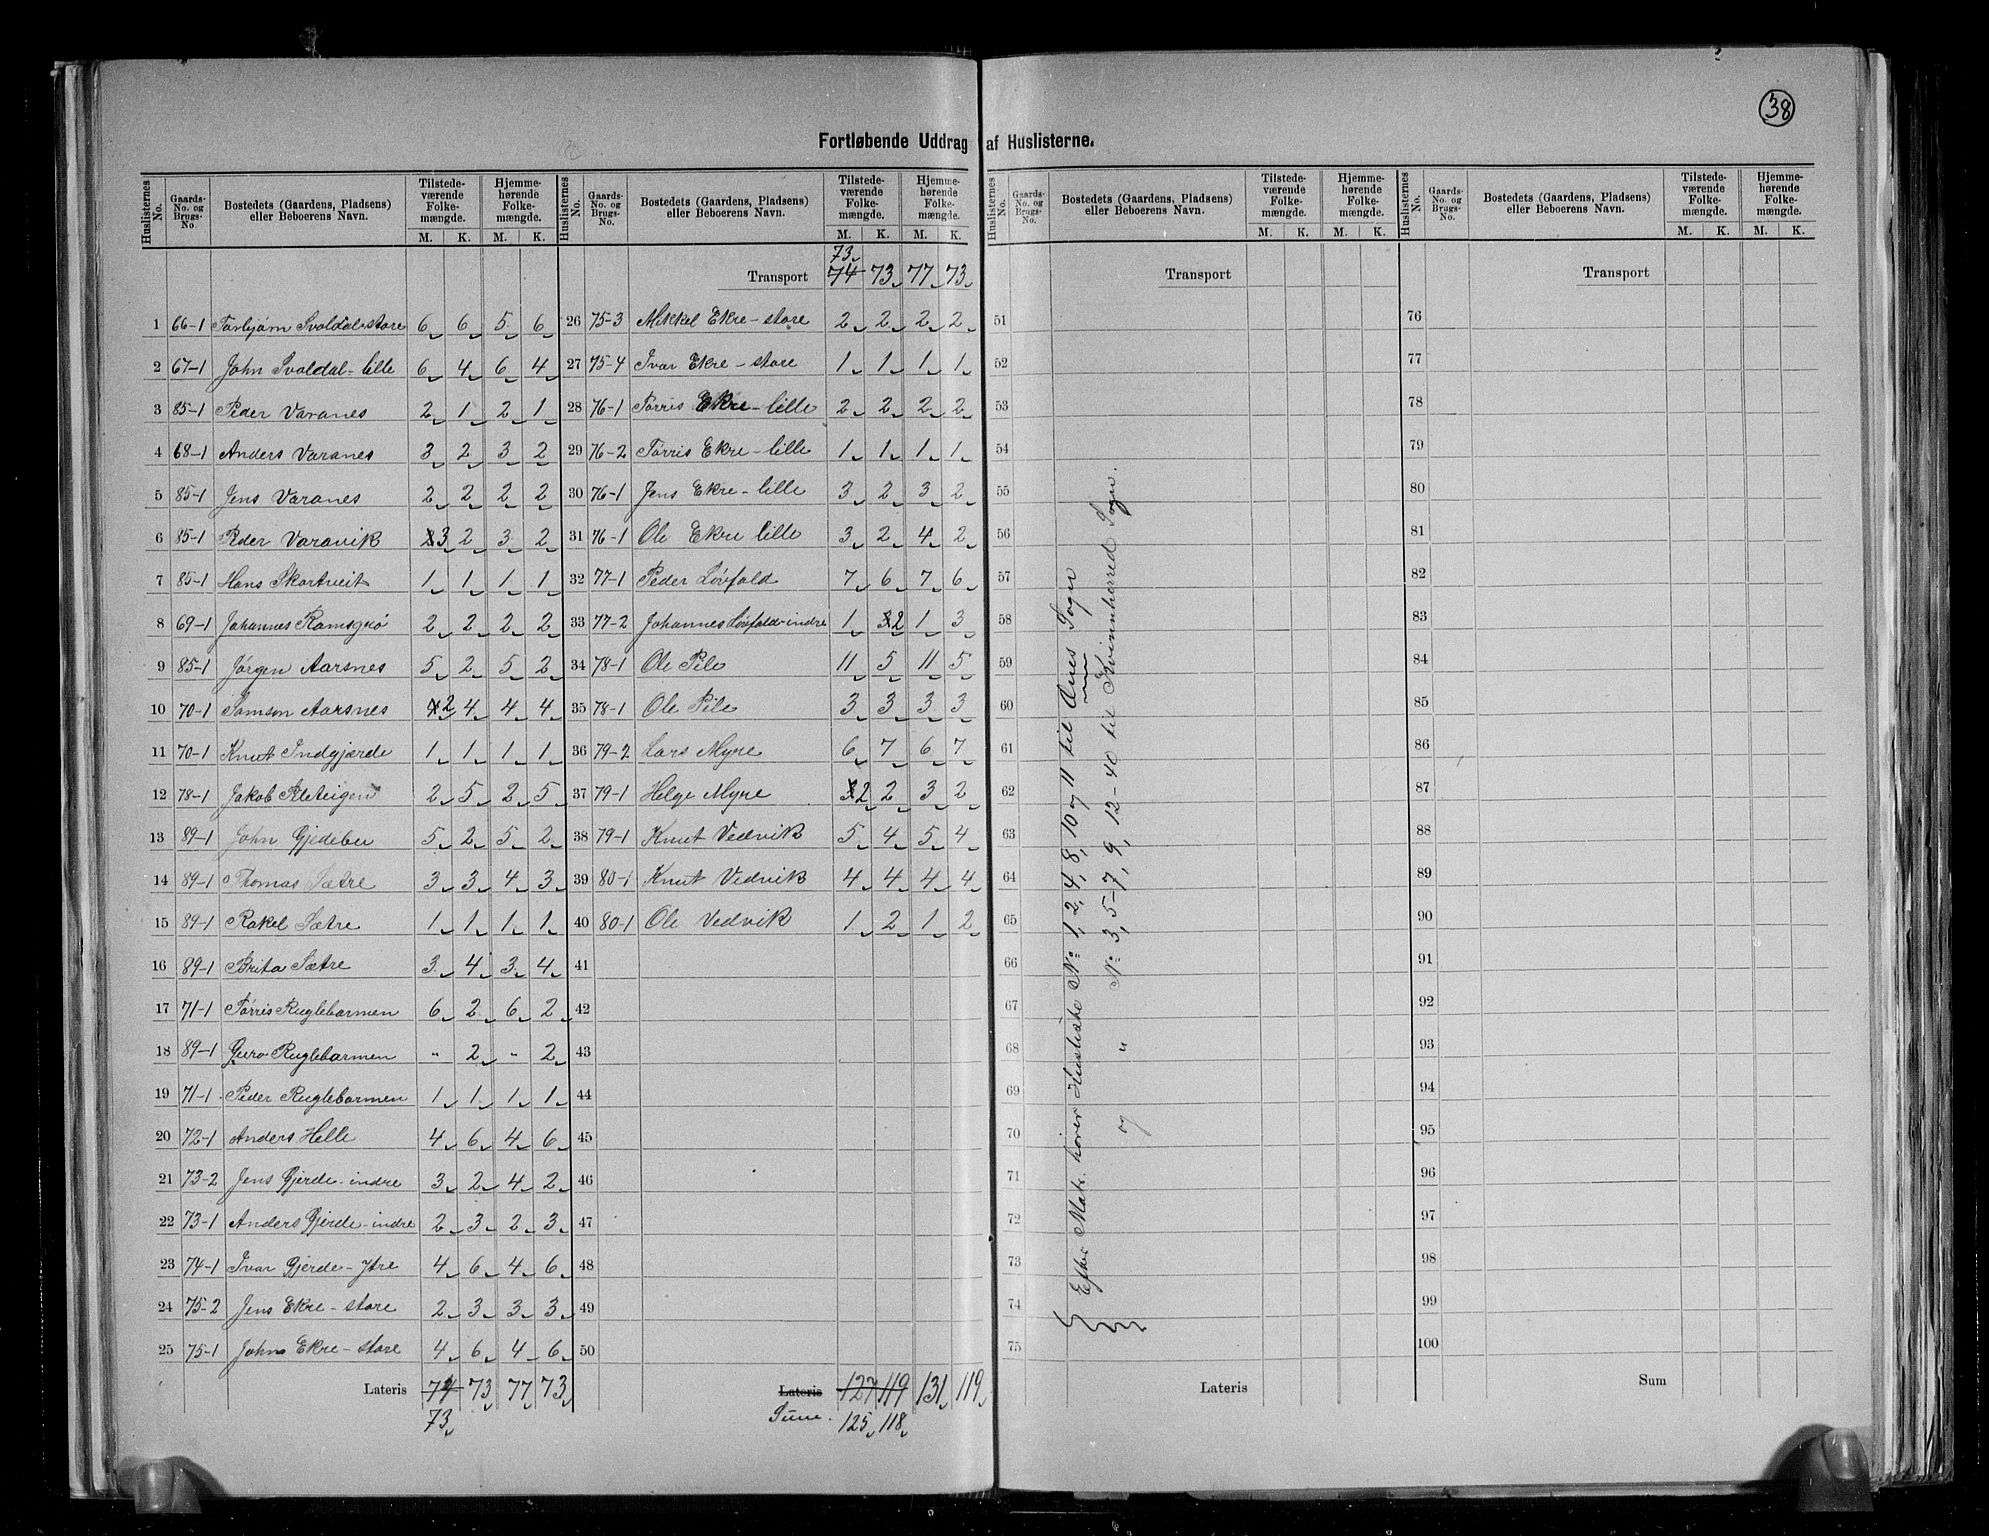 38
Fortløbende Uddrag af Huslisterne.
Huslisternes No. Gaards-No. og Brugs-No. Bostedets (Gaardens, Pladsens) eller Beboerens Navn. Tilstedeværende Folkemængde. M. K. Hjemmehørende Folkemængde. M. K.
1 66-1 Torbjørn Svoldal-store 6 6 5 6
2 67-1 John Svoldal-lille 6 4 6 4
3 85-1 Peder Varanes 2 1 2 1
4 68-1 Anders Varanes 3 2 3 2
5 85-1 Jens Varanes 2 2 2 2
6 85-1 Peder Varavik 3 2 3 2
7 85-1 Hans Skartveit 1 1 1 1
8 69-1 Johannes Ramsgrø 2 2 2 2
9 85-1 Jørgen Aarsnes 5 2 5 2
10 70-1 Samson Aarsnes 2 4 4 4
11 70-1 Knut Indgjerde 1 1 1 1
12 78-1 Jakob Pileteigen 2 5 2 5
13 89-1 John Gjedebu 5 2 5 2
14 89-1 Thomas Sætre 3 3 4 3
15 89-1 Rakel Sætre 1 1 1 1
16 89-1 Brita Sætre 3 4 3 4
17 71-1 Tørris Ruglebarmen 6 2 6 2
18 89-1 Guro Ruglebarmen " 2 " 2
19 71-1 Peder Ruglebarmen 1 1 1 1
20 72-1 Anders Helle 4 6 4 6
21 73-2 Jens Gjerde-indre 3 2 4 2
22 73-1 Anders Gjerde-indre 2 3 2 3
23 74-1 Ivar Gjerde-Ytre 4 6 4 6
24 75-2 Jens Ekre-store 2 3 3 3
25 75-1 Johns Ekre-store 4 6 4 6
Lateris 74 73 77 73
73
Huslisternes No. Gaards-No. og Brugs-No. Bostedets (Gaardens, Pladsens) eller Beboerens Navn. Tilstedeværende Folkemængde. M. K. Hjemmehørende Folkemængde. M. K.
73
Transport 74 73 77 73
26 75-3 Mikkel Ekre-store 2 2 2 2
27 75-4 Ivar Ekre-store 1 1 1 1
28 76-1 Tørris Ekre-lille 2 2 2 2
29 76-2 Tørris Ekre-lille 1 1 1 1
30 76-1 Jens Ekre-lille 3 2 3 2
31 76-1 Ole Ekre lille 3 2 4 2
32 77-1 Peder Løvfald 7 6 7 6
33 77-2 Johannes Løvfald-indre 1 2 1 3
34 78-1 Ole Pile 11 5 11 5
35 78-1 Ole Pile 3 3 3 3
36 79-2 Lars Myre 6 7 6 7
37 79-1 Helge Myre 2 2 3 2
38 79-1 Knut Vedvik 5 4 5 4
39 80-1 Knut Vedvik 4 4 4 4
40 80-1 Ole Vedvik 1 2 1 2
41
42
43
44
45
46
47
48
49
50
Lateris 127 119 131 119
Sum. 125 118
Huslisternes No. Gaards-No. og Brugs-No. Bostedets (Gaardens, Pladsens) eller Beboerens Navn. Tilstedeværende Folkemængde. M. K. Hjemmehørende Folkemængde. M. K.
Transport
51
52
53
54
55
56
57
58
59
60
61
62
63
64
65
66
67
68
69
70
71
72
73
74
75
Lateris
Efter Matr. hører Husliste No 1, 2, 4, 8, 10 og 11 til Ænes Sogn
og " No 3, 5-7, 9, 12-40 til Kvinnherred Sogn.
Huslisternes No. Gaards-No. og Brugs-No. Bostedets (Gaardens, Pladsens) eller Beboerens Navn. Tilstedeværende Folkemængde. M. K. Hjemmehørende Folkemængde. M. K.
Transport
76
77
78
79
80
81
82
83
84
85
86
87
88
89
90
91
92
93
94
95
96
97
98
99
100
Sum